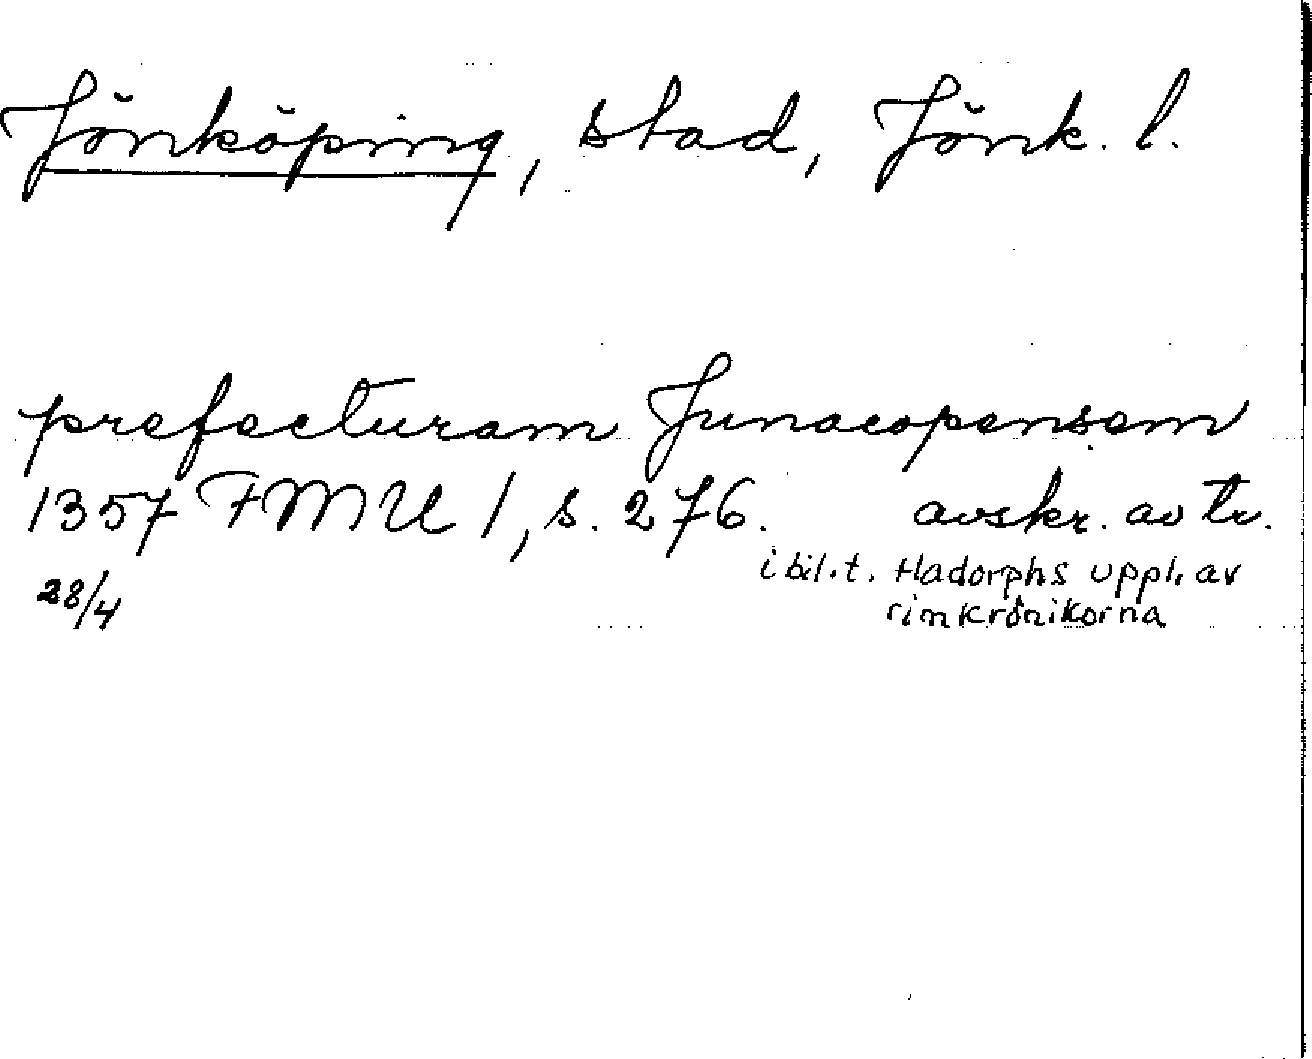 Jönköping, stad, Jönk. l.
prefecturam Junacopensem
1357 FMU 1, s. 276. avskr. av tr.
i bil. t. Hadorphs uppl. av
28/4
rimkrönikorna